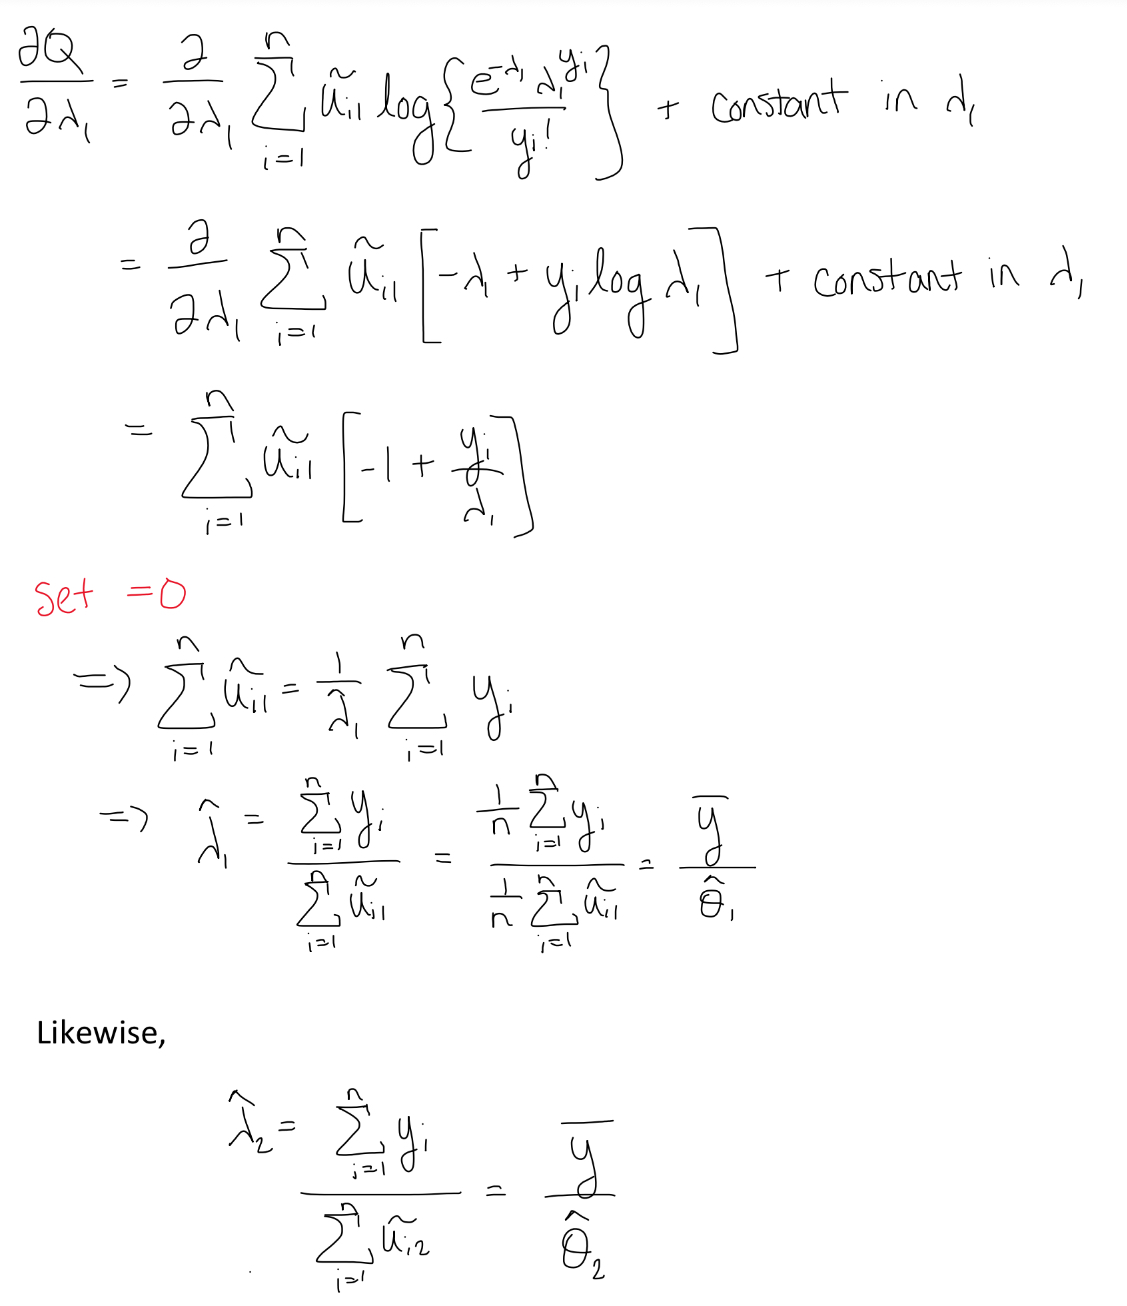 ∂Q/∂λ₁ = ∂/∂λ₁ ∑_{i=1}^{n} ũ_{i1} log{ e^{-λ₁} λ₁^{y_i} / y_i! } + constant in λ₁
= ∂/∂λ₁ ∑_{i=1}^{n} ũ_{i1} [ -λ₁ + y_i log λ₁ ] + constant in λ₁
= ∑_{i=1}^{n} ũ_{i1} [ -1 + y_i/λ₁ ]
Set =0
=> ∑_{i=1}^{n} ũ_{i1} = 1/λ̂₁ ∑_{i=1}^{n} y_i
=> λ̂₁ = ∑_{i=1}^{n} y_i / ∑_{i=1}^{n} ũ_{i1} = (1/n ∑_{i=1}^{n} y_i) / (1/n ∑_{i=1}^{n} ũ_{i1}) = ȳ / θ̂₁
Likewise,
λ̂₂ = ∑_{i=1}^{n} y_i / ∑_{i=1}^{n} ũ_{i2} = ȳ / θ̂₂